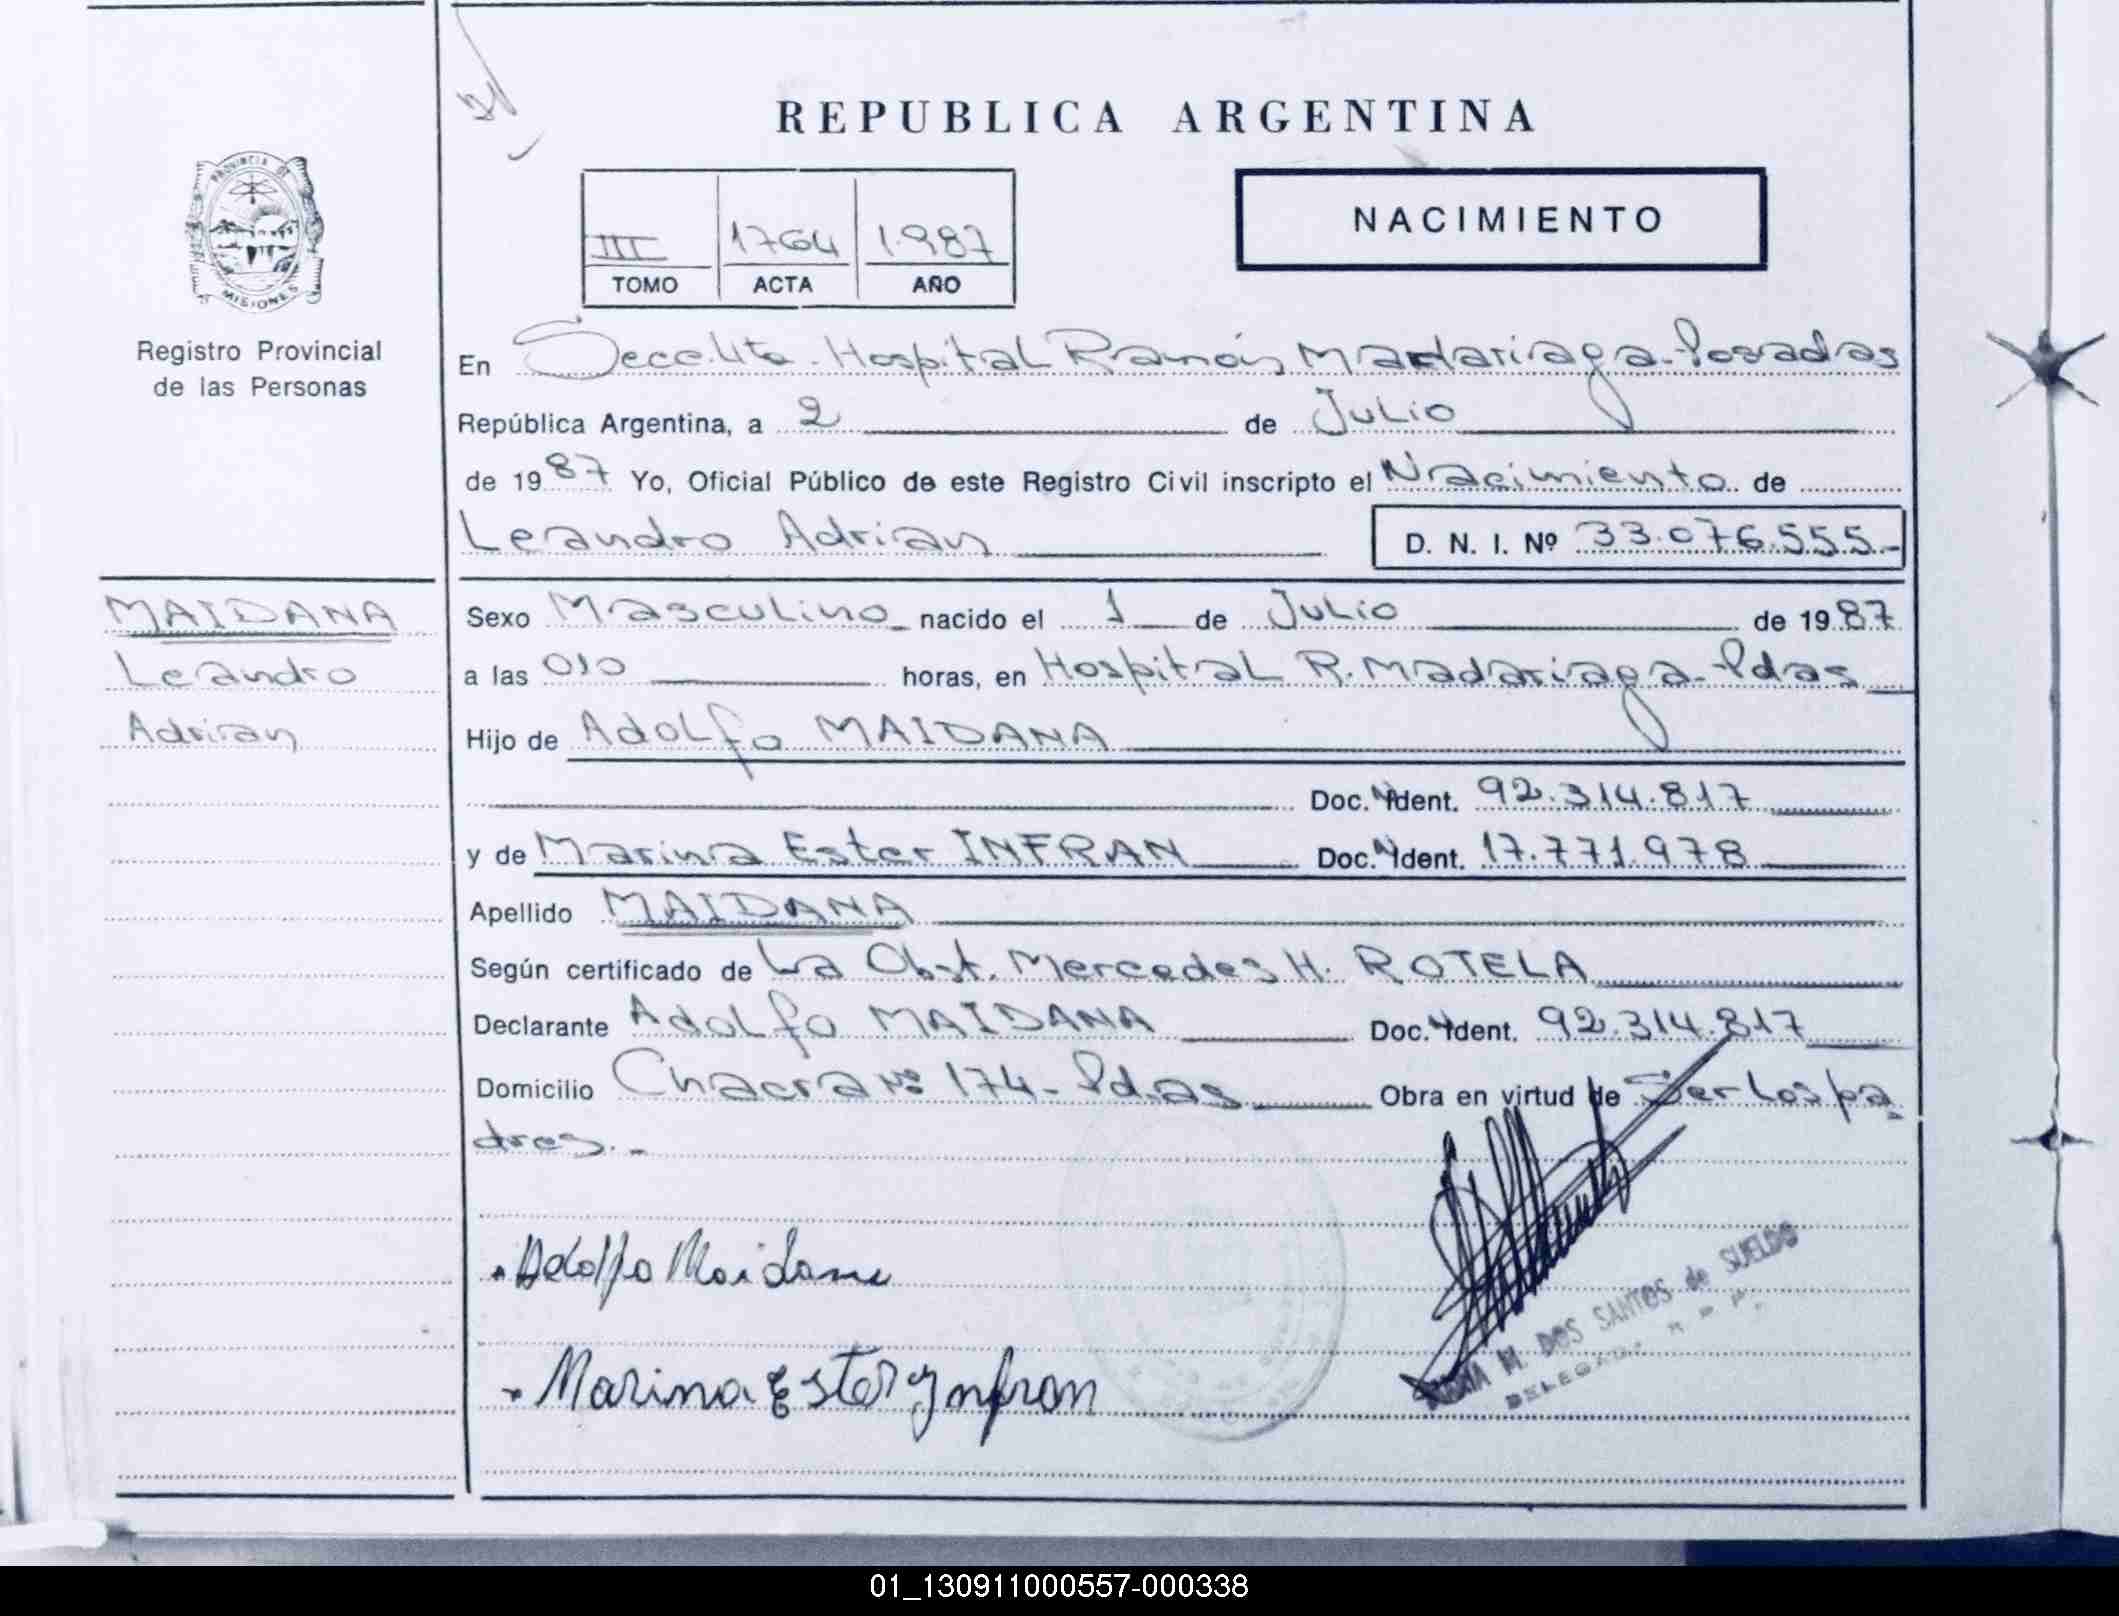 REPUBLICA ARGENTINA
NACIMIENTO
III 1764 1.987
TOMO ACTA AÑO
PROVINCIA DE
MISIONES
Registro Provincial
de las Personas
En Secc. Hospital Ramón Madariaga - Posadas
República Argentina, a 2 de Julio
de 19 87 Yo, Oficial Público de este Registro Civil inscripto el Nacimiento de
Leandro Adrian D. N. I. Nº 33.076.555-
MAIDANA
Leandro
Adrian
Sexo Masculino nacido el 1 de Julio de 19 87
a las 010 horas, en Hospital R. Madariaga - Pdas
Hijo de Adolfo MAIDANA
Doc. Ident. 92.314.817
y de Marina Ester INFRAN Doc. Ident. 17.771.978
Apellido MAIDANA
Según certificado de La Obst. Mercedes H. ROTELA
Declarante Adolfo MAIDANA Doc. Ident. 92.314.817
Domicilio Chacra Nº 174 - Pdas Obra en virtud de Ser Los pa
dres.-
Adolfo Maidana
Marina Ester Ynfran
M. DOS SANTOS de SUELDO
DELEGADA
01_130911000557-000338